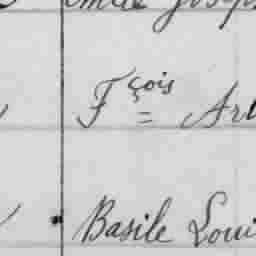 Emile Joseph
Fçois = Art
Basile Loui